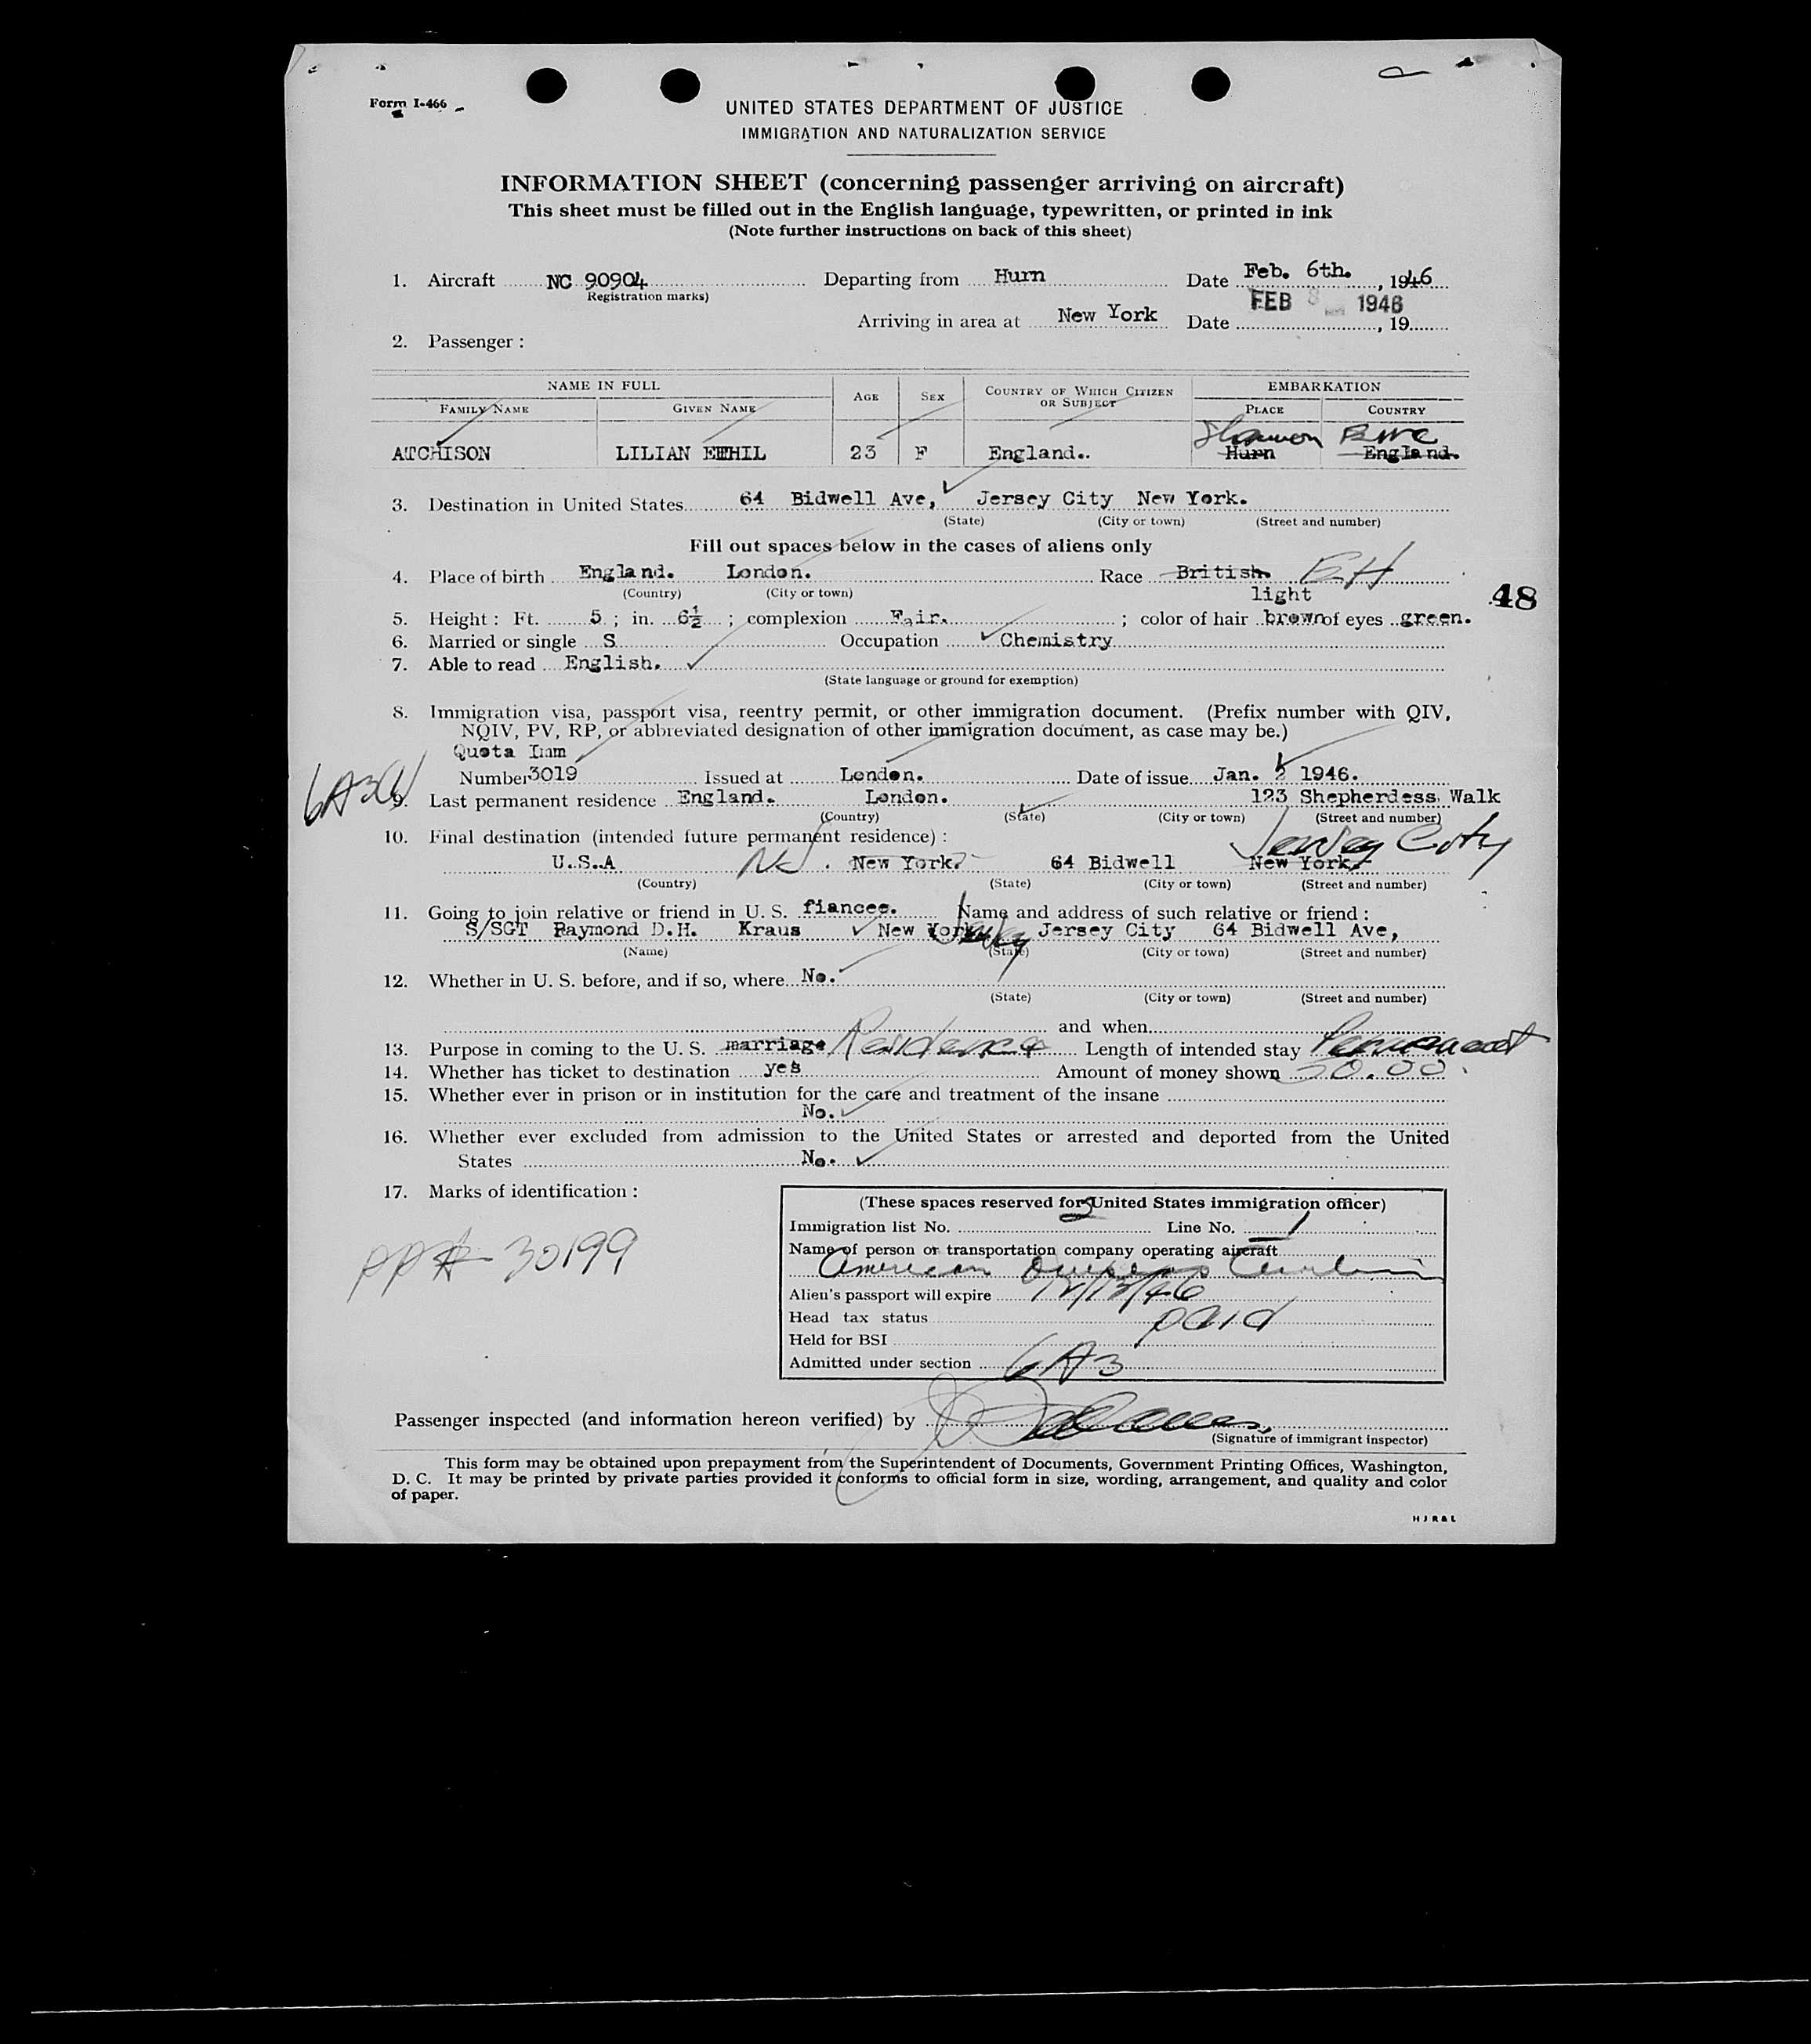 Form I-466
UNITED STATES DEPARTMENT OF JUSTICE
IMMIGRATION AND NATURALIZATION SERVICE
INFORMATION SHEET (concerning passenger arriving on aircraft)
This sheet must be filled out in the English language, typewritten, or printed in ink
(Note further instructions on back of this sheet)
1. Aircraft NC 90904 Departing from Hurn Date Feb. 6th., 1946
Registration marks)
FEB 8 1946
Arriving in area at New York Date , 19
2. Passenger :
NAME IN FULL AGE SEX COUNTRY OF WHICH CITIZEN OR SUBJECT EMBARKATION
FAMILY NAME GIVEN NAME PLACE COUNTRY
Shannon Eire
ATCHISON LILIAN ETHIL 23 F England. Hurn England.
3. Destination in United States 64 Bidwell Ave, Jersey City New York.
(State) (City or town) (Street and number)
Fill out spaces below in the cases of aliens only
4. Place of birth England. London. Race British. EH
(Country) (City or town) light
5. Height : Ft. 5 ; in. 6½ ; complexion Fair. ; color of hair brown of eyes green.
48
6. Married or single S Occupation Chemistry
7. Able to read English.
(State language or ground for exemption)
8. Immigration visa, passport visa, reentry permit, or other immigration document. (Prefix number with QIV,
NQIV, PV, RP, or abbreviated designation of other immigration document, as case may be.)
Quota Imm
Number 3019 Issued at London. Date of issue Jan. 2 1946.
9. Last permanent residence England. London. 123 Shepherdess Walk
(Country) (State) (City or town) (Street and number)
10. Final destination (intended future permanent residence) : Jersey City
U.S.A NJ. New York. 64 Bidwell New York.
(Country) (State) (City or town) (Street and number)
11. Going to join relative or friend in U. S. fiancee. Name and address of such relative or friend :
S/SGT Raymond D.H. Kraus New York Jersey Jersey City 64 Bidwell Ave,
(Name) (State) (City or town) (Street and number)
12. Whether in U. S. before, and if so, where No.
(State) (City or town) (Street and number)
and when
13. Purpose in coming to the U. S. marriage Residence Length of intended stay Permanent
14. Whether has ticket to destination yes Amount of money shown 50.00
15. Whether ever in prison or in institution for the care and treatment of the insane
No.
16. Whether ever excluded from admission to the United States or arrested and deported from the United
States No.
17. Marks of identification :
PP# 30199
(These spaces reserved for United States immigration officer)
Immigration list No. 2 Line No. 1
Name of person or transportation company operating aircraft
American Overseas Airlines
Alien's passport will expire 12/13/46
Head tax status paid
Held for BSI
Admitted under section 6A3
Passenger inspected (and information hereon verified) by
(Signature of immigrant inspector)
This form may be obtained upon prepayment from the Superintendent of Documents, Government Printing Offices, Washington,
D. C. It may be printed by private parties provided it conforms to official form in size, wording, arrangement, and quality and color
of paper.
H J R & L